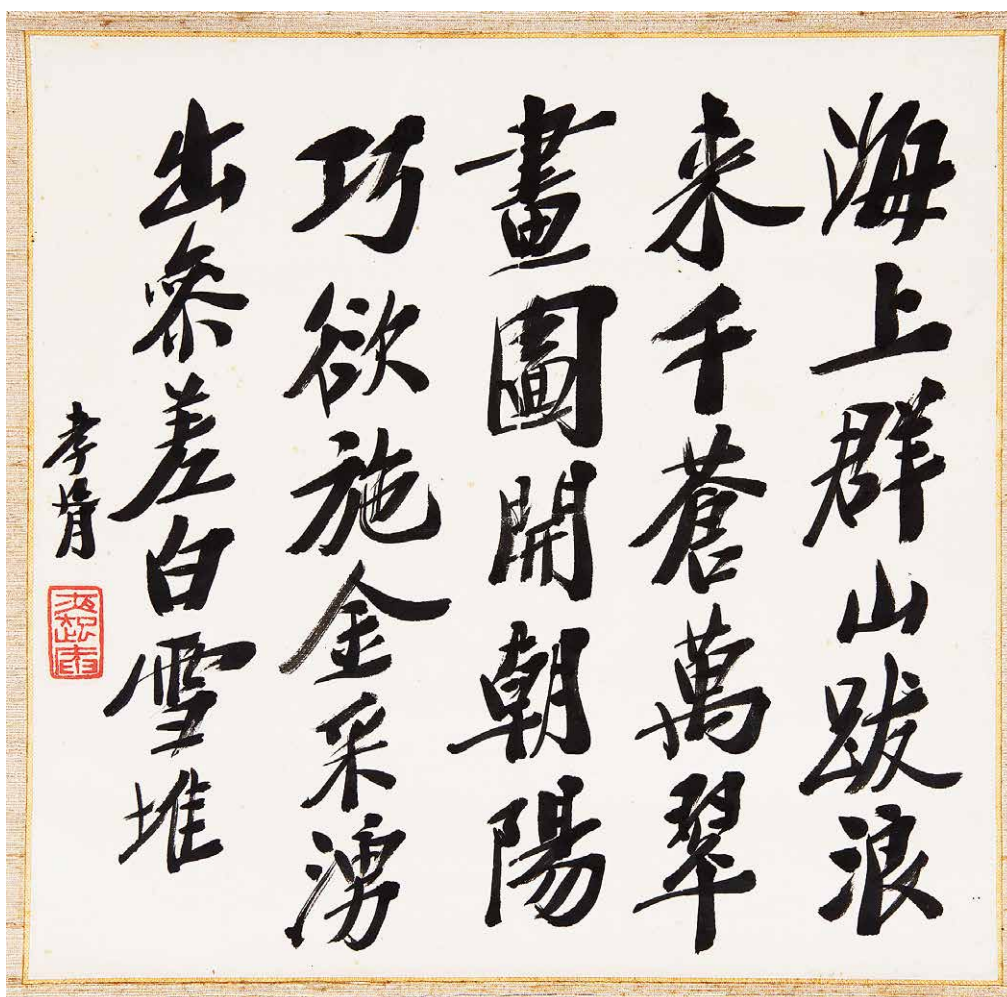 海上群山跋浪
来千蒼萬翠
畫圖開朝陽
巧欲施金采湧
出參差白雪堆
孝胥
夜起庵